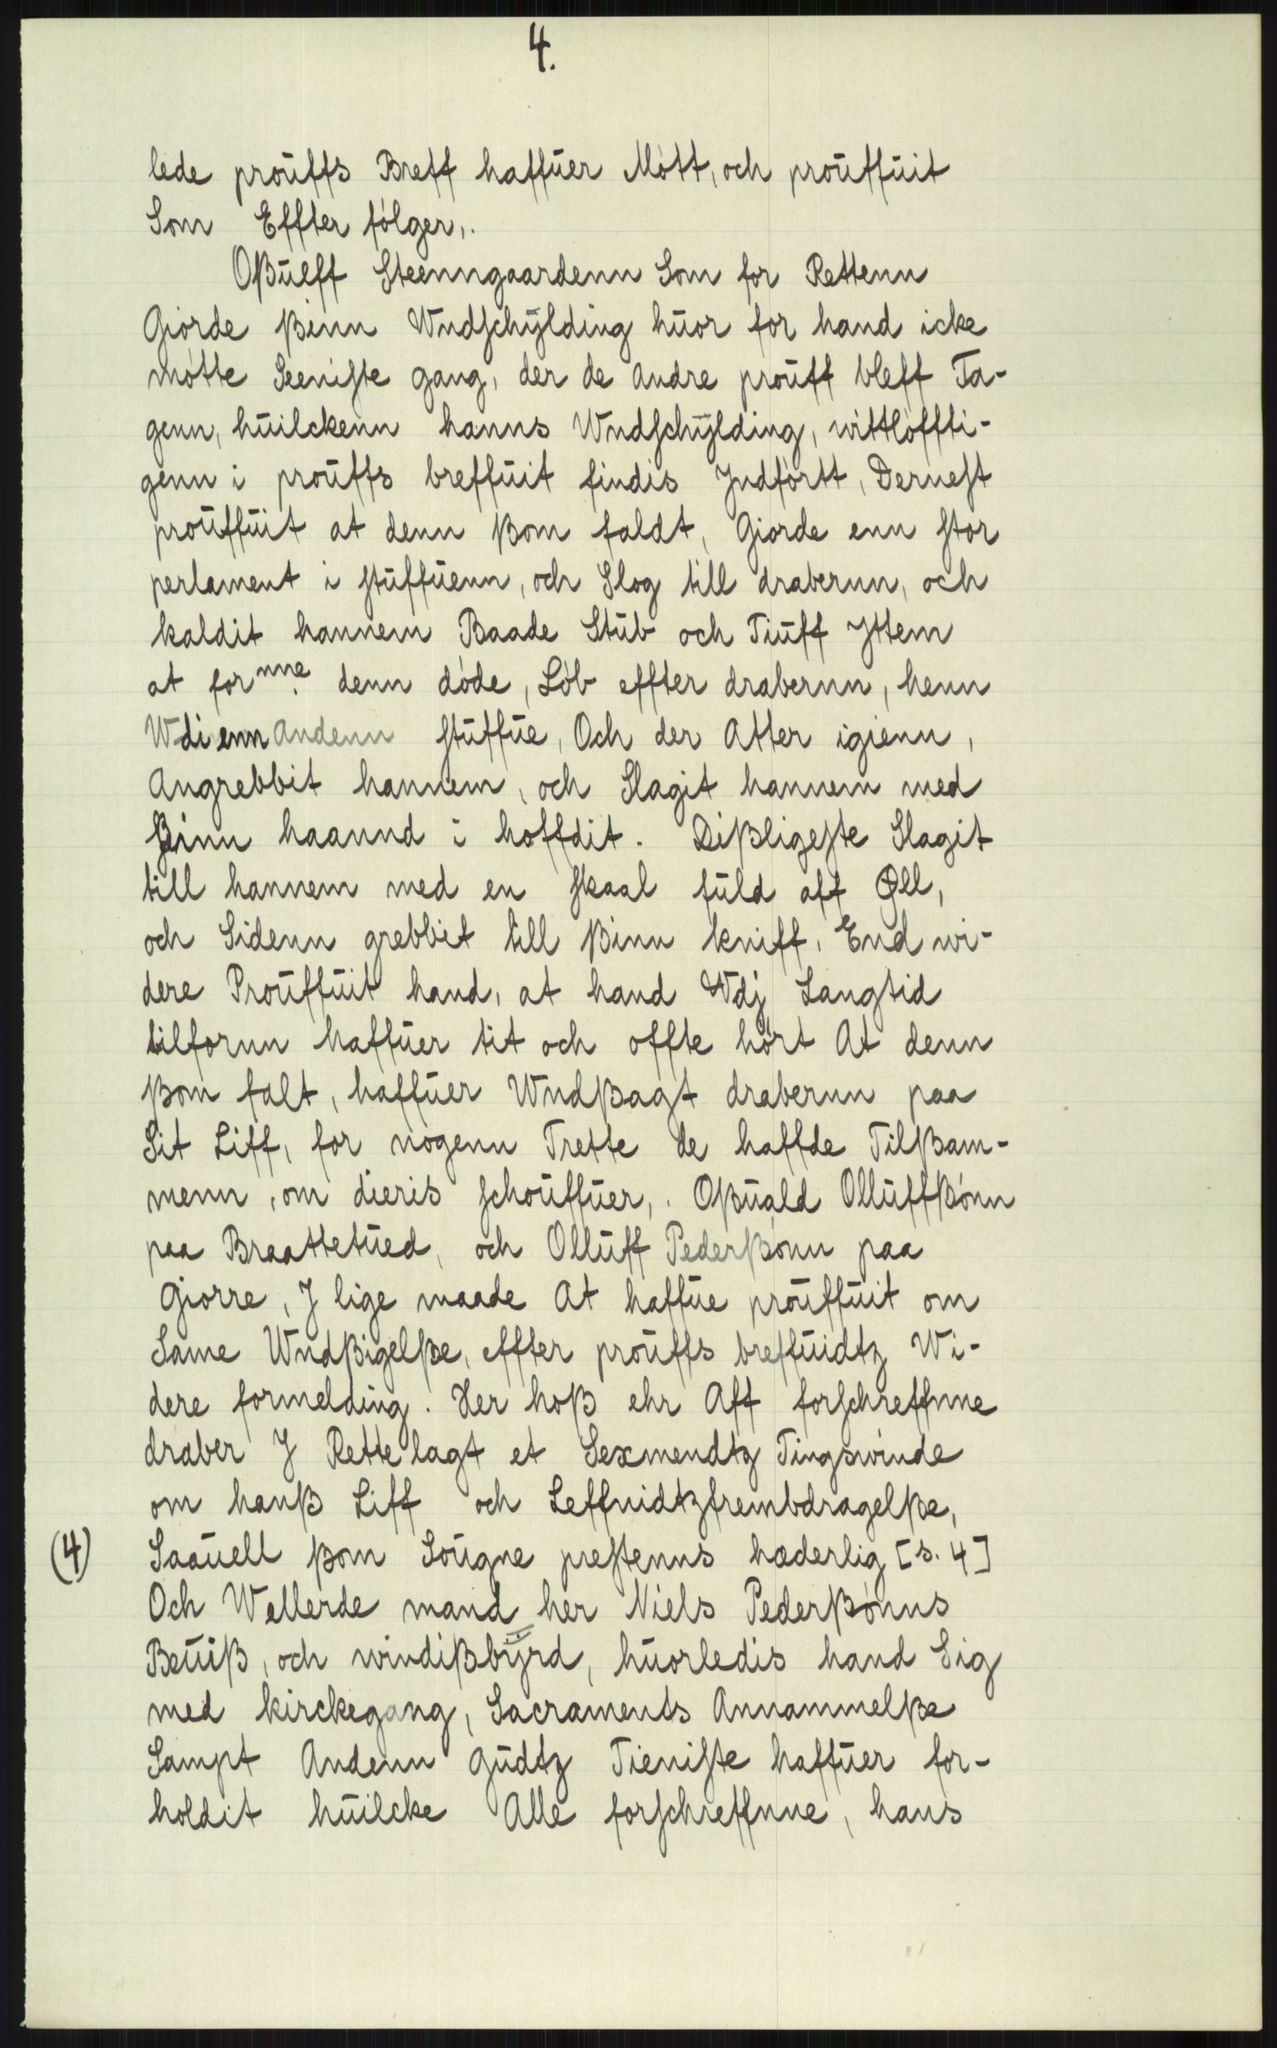 4.
lede proŭffs Breff haffŭer Mótt, och proŭffŭit
Som Effter fólger,.
Oßŭlff Steenngaardenn Som for Rettenn
Giorde ßinn Wndschÿlding hŭor for hand icke
mótte Seeniste gang, der de andre proŭff bleff Ta-
genn, hŭilckenn hanns Wndschÿlding, wittlóffti-
genn i proŭffs breffŭit findis Jndfórtt, Dernest
proŭffŭit at denn ßom faldt, Giorde enn stor
perlament i stŭffŭenn, och Slog till drabernn, och
kaldit hannem Baade Stŭb och Tiŭff Jttem
at fornne. denn dóde, Lób effter drabernn, henn
Wdi enn andenn stŭffŭe, Och der Atter igienn,
Angrebbit hannem, och Slagit hannem med
ßinn haannd i hoffdit. Dißligeste Slagit
till hannem med en skaal fŭld aff Øll,
och Sidenn grebbit till ßinn kniff, End wi-
dere Proŭffŭit hand, at hand Wdj Langtid
tilfornn haffŭer tit och offte hórt At denn
ßom falt, haffŭer Wndßagt drabernn paa
Sit Liff, for nogenn Trette de haffde Tilßam-
menn, om dieris schoŭffŭer,. Oßŭald Ollŭffßónn
paa Braattetŭed, och Ollŭff Pederßónn paa
Giorre, J lige maade At haffŭe proŭffŭit om
Same Wndßigelße, effter proŭffs breffŭidtz Wi-
dere formelding. Her hoß ehr Aff forschreffnne
draber J Rette lagt et Sexmendtz Tingswinde
om hanß Liff och Leffnidtzfrembdragelße,
(4) Saaŭell ßom Soŭgne prestenns hæderlig [s. 4]
Och Wellerde mand her Niels Pederßónns
Beŭiß, och windißbÿrd, hŭorledis hand Sig
med kirckegang, Sacraments Annammelße
Sampt Andenn Gŭdtz Tieniste haffŭer for-
holdit hŭilcke Alle forschreffnne, hans